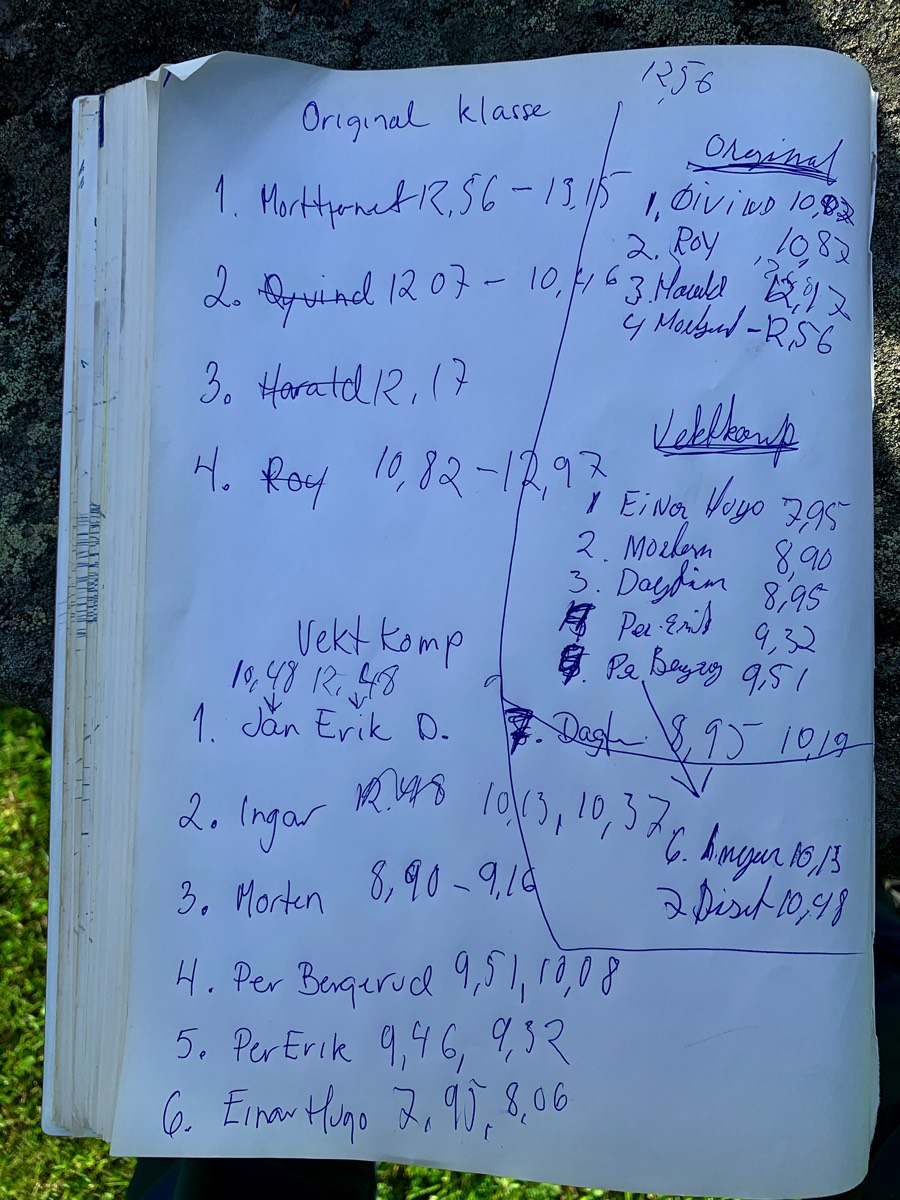 Original klasse
1. 12,56 - 13,15
2. Øyvind 12 07 - 10,46
3. Harald 12,17
4. Roy 10,82 - 12,97
Vekt komp
10,48 12,48
1. Jan Erik D.
2. Ingar 10,13, 10,37
3. Morten 8,90 - 9,16
4. Per Bergerud 9,51, 10,08
5. Per Erik 9,46, 9,32
6. Einar Hugo 7,95, 8,06
12,56
Orginal
1. Øivind
2. Roy 10,82
3. Harald 12,17
4 - 12,56
Vektkomp
1 Einar Hugo 7,95
2. Morten 8,90
3. 8,95
Per-Erik 9,32
Per 9,51
8,95 10,19
6. 10,13
7 10,48